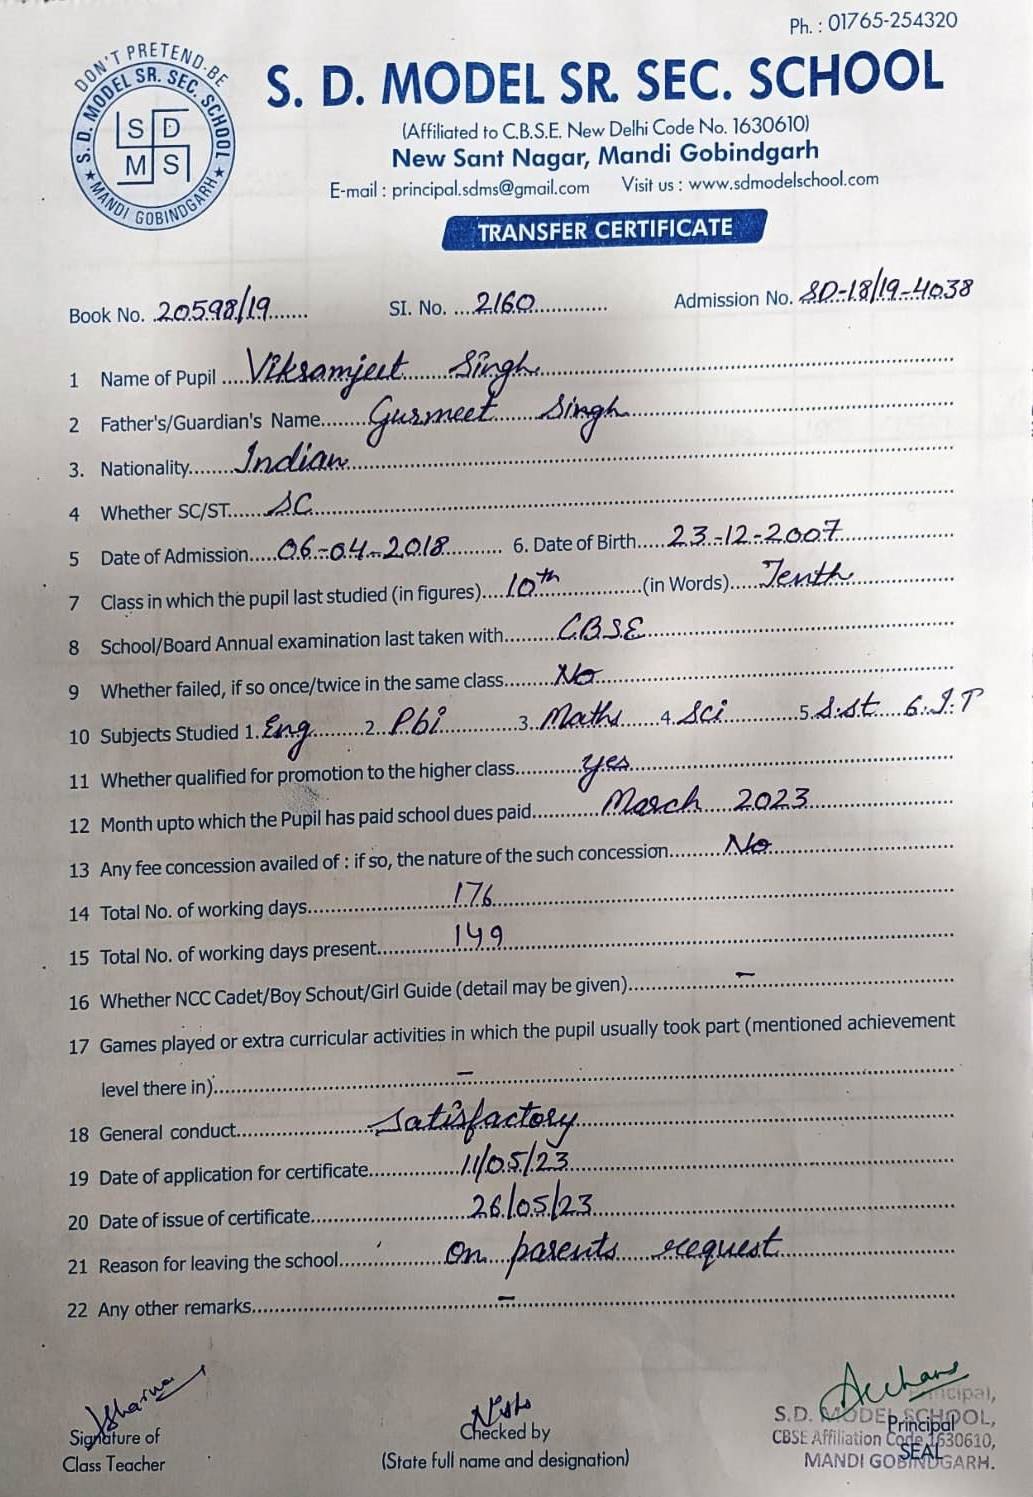 Ph. : 01765-254320
DON'T PRETEND-BE
S. D. MODEL SR. SEC. SCHOOL
★ MANDI GOBINDGARH ★
S D
M S
S. D. MODEL SR. SEC. SCHOOL
(Affiliated to C.B.S.E. New Delhi Code No. 1630610)
New Sant Nagar, Mandi Gobindgarh
E-mail : principal.sdms@gmail.com Visit us : www.sdmodelschool.com
TRANSFER CERTIFICATE
Book No. 20598/19 SI. No. 2160 Admission No. SD-18/19-4038
1 Name of Pupil Viksamjeet Singh
2 Father's/Guardian's Name Gurmeet Singh
3. Nationality Indian
4 Whether SC/ST SC
5 Date of Admission 06-04-2018 6. Date of Birth 23-12-2007
7 Class in which the pupil last studied (in figures) 10th (in Words) Tenth
8 School/Board Annual examination last taken with C.B.S.E
9 Whether failed, if so once/twice in the same class No
10 Subjects Studied 1. Eng 2. Pbi 3. Maths 4. Sci 5. S.st 6. I.T
11 Whether qualified for promotion to the higher class yes
12 Month upto which the Pupil has paid school dues paid March 2023
13 Any fee concession availed of : if so, the nature of the such concession No
14 Total No. of working days 176
15 Total No. of working days present 149
16 Whether NCC Cadet/Boy Schout/Girl Guide (detail may be given) –
17 Games played or extra curricular activities in which the pupil usually took part (mentioned achievement
level there in) –
18 General conduct Satisfactory
19 Date of application for certificate 11/05/23
20 Date of issue of certificate 26/05/23
21 Reason for leaving the school on parents request
22 Any other remarks –
Sharma
Signature of
Class Teacher
Nisha
Checked by
(State full name and designation)
Principal,
S.D. MODEL SCHOOL,
CBSE Affiliation Code 1630610,
MANDI GOBINDGARH.
Principal
SEAL